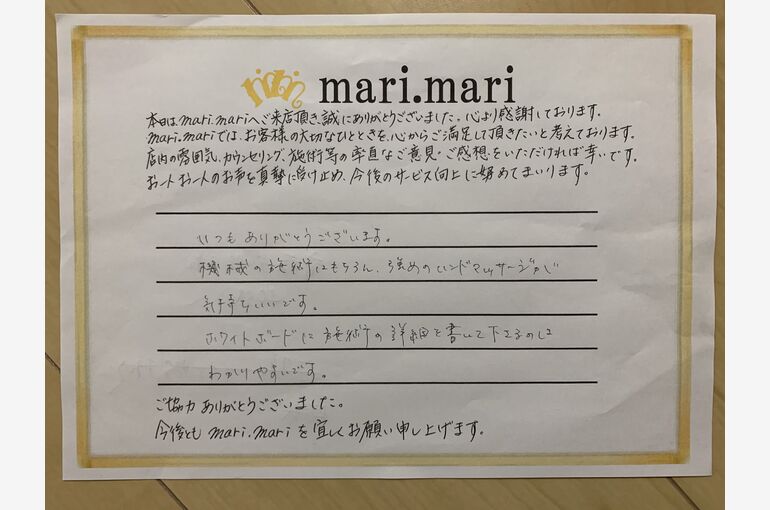 mari.mari
本日はmari.mariへご来店頂き、誠にありがとうございました。心より感謝しております。
mari.mariでは、お客様の大切なひとときを、心からご満足して頂きたいと考えております。
店内の雰囲気、カウンセリング、施術等の率直なご意見・ご感想をいただければ幸いです。
お一人お一人のお声を真摯に受け止め、今後のサービス向上に努めてまいります。
いつもありがとうございます。
機械の施術はもちろん、強めのハンドマッサージが
気持ちいいです。
ホワイトボードに施術の詳細を書いて下さるのは
わかりやすいです。
ご協力ありがとうございました。
今後とも mari.mari を宜しくお願い申し上げます。